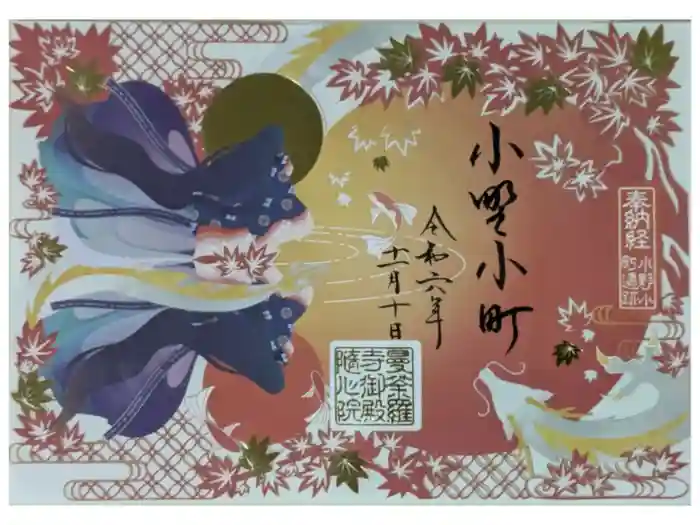 奉納経
小野小
町遺跡
小野小町
令和六年
十一月十日
曼荼羅
寺御殿
随心院